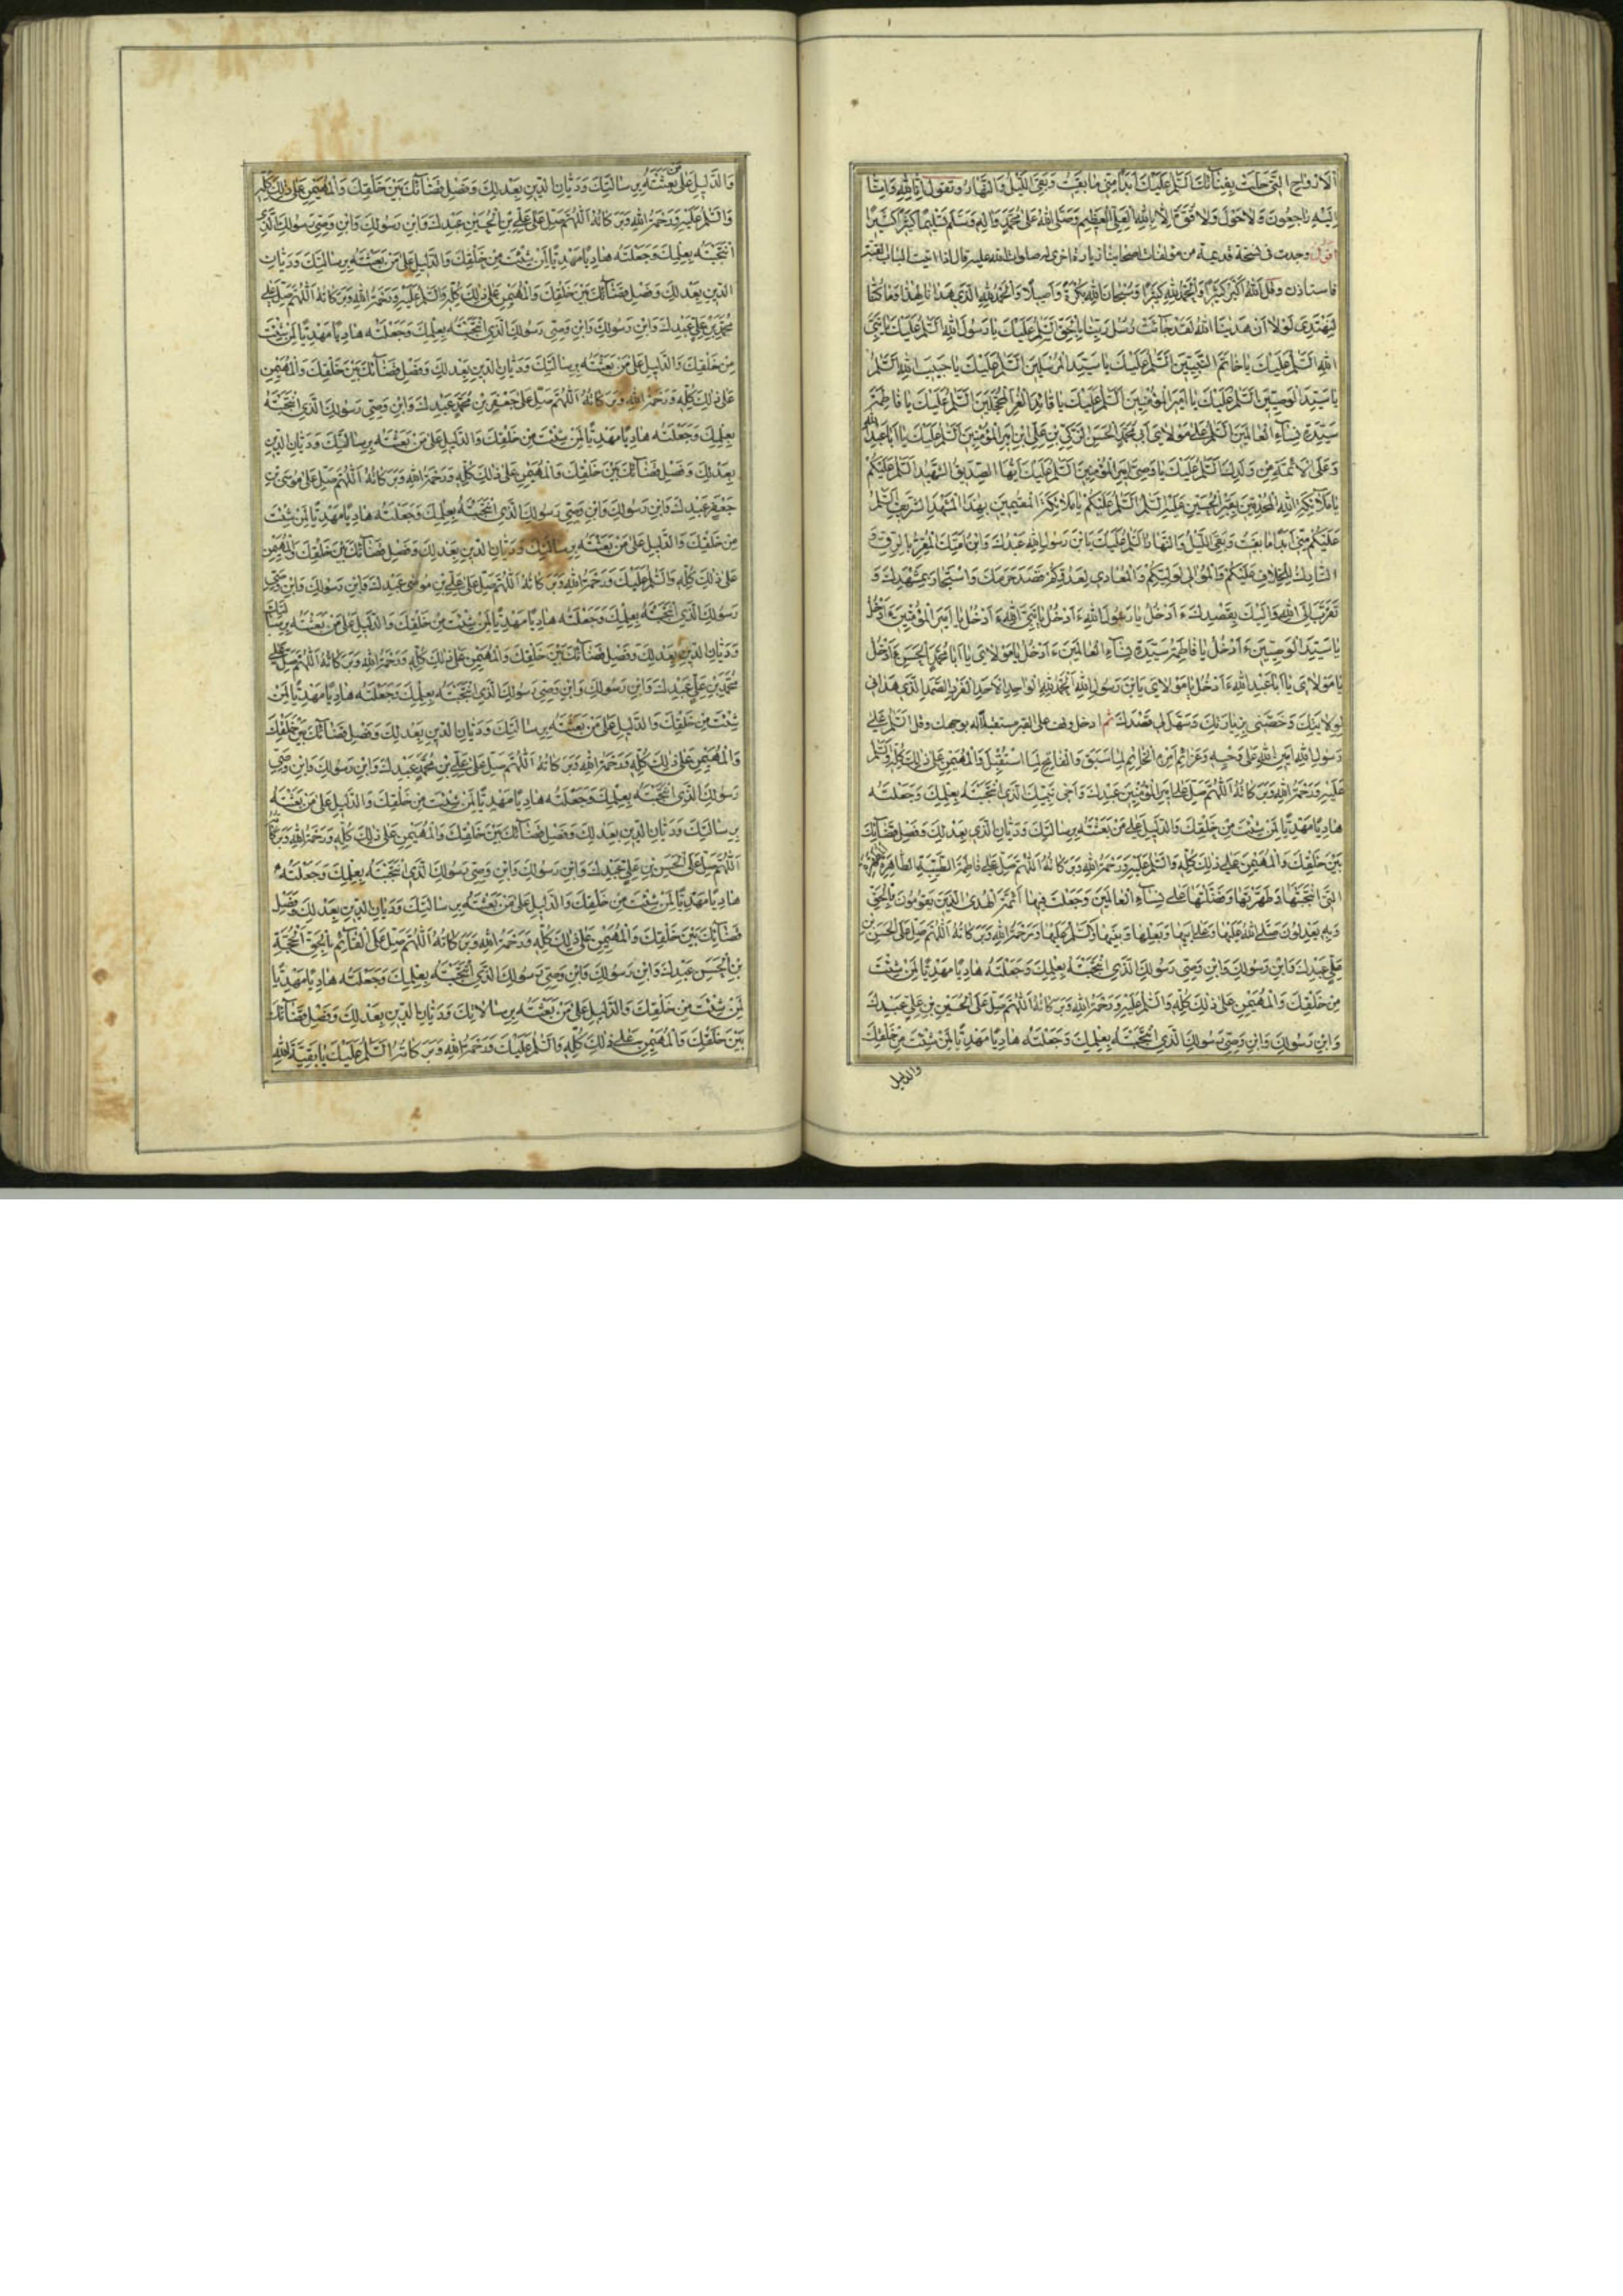 الْاَرْوٰاحِ الَّتى حَلَّتْ بِفِنٰآئِكَ اَلسَّلٰمُ عَلَيْكَ اَبَدًا مِنّى مٰا بَقيتُ وَبَقِىَ اللَّيْلُ وَالنَّهٰارُ وتقول اِنّٰا لِلّٰهِ وَاِنّٰا
اِلَيْهِ رٰاجِعُونَ وَلٰا حَوْلَ وَلٰا قُوَّةَ اِلّٰا بِاللّٰهِ الْعَلِىِّ الْعَظيمِ وَصَلَّى اللّٰهُ عَلىٰ مُحَمَّدٍ وَاٰلِهِ وَسَلَّمَ تَسْليمًا كَثيرًا كَثيرًا
اقول وجدت فى نسخة قديمة من مؤلفات اصحابنا زيارة اخرى له صلوات الله عليه قال اذا اتيت الباب فقف
فاستاذن وقل اَللّٰهُ اَكْبَرُ كَبيرًا وَالْحَمْدُ لِلّٰهِ كَثيرًا وَسُبْحٰانَ اللّٰهِ بُكْرَةً وَاَصيلًا وَالْحَمْدُ لِلّٰهِ الَّذى هَدٰانٰا لِهٰذٰا وَمٰا كُنّٰا
لِنَهْتَدِىَ لَوْلٰا اَنْ هَدٰينَا اللّٰهُ لَقَدْ جٰآئَتْ رُسُلُ رَبِّنٰا بِالْحَقِّ اَلسَّلٰمُ عَلَيْكَ يٰا رَسُولَ اللّٰهِ اَلسَّلٰمُ عَلَيْكَ يٰا نَبِىَّ
اللّٰهِ اَلسَّلٰمُ عَلَيْكَ يٰا خٰاتَمَ النَّبِيّينَ اَلسَّلٰمُ عَلَيْكَ يٰا سَيِّدَ الْمُرْسَلينَ اَلسَّلٰمُ عَلَيْكَ يٰا حَبيبَ اللّٰهِ اَلسَّلٰمُ
يٰا سَيِّدَ الْوَصِيّينَ اَلسَّلٰمُ عَلَيْكَ يٰا اَميرَ الْمُؤْمِنينَ اَلسَّلٰمُ عَلَيْكَ يٰا قٰائِدَ الْغُرِّ الْمُحَجَّلينَ اَلسَّلٰمُ عَلَيْكَ يٰا فٰاطِمَةُ
سَيِّدَةَ نِسٰآءِ الْعٰالَمينَ اَلسَّلٰمُ عَلىٰ مَوْلٰاىَ اَبى مُحَمَّدٍ الْحَسَنِ الزَّكِىِّ بْنِ عَلِىِّ ابْنِ اَميرِ الْمُؤْمِنينَ اَلسَّلٰمُ عَلَيْكَ يٰا اَبٰا عَبْدِ اللّٰهِ
وَعَلَى الْاَئِمَّةِ مِنْ وَلَدِكَ اَلسَّلٰمُ عَلَيْكَ يٰا وَصِىَّ اَميرِ الْمُؤْمِنينَ اَلسَّلٰمُ عَلَيْكَ اَيُّهَا الصِّدّيقُ الشَّهيدُ اَلسَّلٰمُ عَلَيْكُمْ
يٰا مَلٰآئِكَةَ اللّٰهِ الْمُحْدِقينَ بِقَبْرِ الْحُسَيْنِ عَلَيْهِ السَّلٰمُ اَلسَّلٰمُ عَلَيْكُمْ يٰا مَلٰآئِكَةَ الْمُقيمينَ بِهٰذَا الْمَشْهَدِ الشَّريفِ اَلسَّلٰمُ
عَلَيْكُمْ مِنّى اَبَدًا مٰا بَقيتُ وَبَقِىَ اللَّيْلُ وَالنَّهٰارُ اَلسَّلٰمُ عَلَيْكَ يَابْنَ رَسُولِ اللّٰهِ عَبْدُكَ وَابْنُ اَمَتِكَ الْمُقِرُّ بِالرِّقِّ وَ
التّٰارِكُ لِلْخِلٰافِ عَلَيْكُمْ وَالْمُوٰالى لِوَلِيِّكُمْ وَالْمُعٰادى لِعَدُوِّكُمْ قَصَدَ حَرَمَكَ وَاسْتَجٰارَ بِمَشْهَدِكَ وَ
تَقَرَّبَ اِلَى اللّٰهِ وَاِلَيْكَ بِقَصْدِكَ ءَاَدْخُلُ يٰا رَسُولَ اللّٰهِ ءَاَدْخُلُ يٰا نَبِىَّ اللّٰهِ ءَاَدْخُلُ يٰا اَميرَ الْمُؤْمِنينَ ءَاَدْخُلُ
يٰا سَيِّدَ الْوَصِيّينَ ءَاَدْخُلُ يٰا فٰاطِمَةُ سَيِّدَةَ نِسٰآءِ الْعٰالَمينَ ءَاَدْخُلُ يٰا مَوْلٰاىَ يٰا اَبٰا مُحَمَّدٍ الْحَسَنَ ءَاَدْخُلُ
يٰا مَوْلٰاىَ يٰا اَبٰا عَبْدِ اللّٰهِ ءَاَدْخُلُ يٰا مَوْلٰاىَ يَابْنَ رَسُولِ اللّٰهِ اَلْحَمْدُ لِلّٰهِ الْوٰاحِدِ الْاَحَدِ الْفَرْدِ الصَّمَدِ الَّذى هَدٰانى
لِوِلٰايَتِكَ وَخَصَّنى بِزِيٰارَتِكَ وَسَهَّلَ لى قَصْدَكَ ثم ادخل وقف على القبر مستقبلا له بوجهك وقل اَلسَّلٰمُ عَلىٰ
رَسُولِ اللّٰهِ اَمينِ اللّٰهِ عَلىٰ وَحْيِهِ وَعَزٰائِمِ اَمْرِهِ الْخٰاتِمِ لِمٰا سَبَقَ وَالْفٰاتِحِ لِمَا اسْتُقْبِلَ وَالْمُهَيْمِنِ عَلىٰ ذٰلِكَ كُلِّهِ وَالسَّلٰمُ
عَلَيْهِ وَرَحْمَةُ اللّٰهِ وَبَرَكٰاتُهُ اَللّٰهُمَّ صَلِّ عَلىٰ اَميرِ الْمُؤْمِنينَ عَبْدِكَ وَاَخى نَبِيِّكَ الَّذِى انْتَجَبْتَهُ بِعِلْمِكَ وَجَعَلْتَهُ
هٰادِيًا مَهْدِيًّا لِمَنْ شِئْتَ مِنْ خَلْقِكَ وَالدَّليلَ عَلىٰ مَنْ بَعَثْتَهُ بِرِسٰالَتِكَ وَدَيّٰانَ الدّينِ بِعَدْلِكَ وَفَصْلَ قَضٰآئِكَ
بَيْنَ خَلْقِكَ وَالْمُهَيْمِنَ عَلىٰ ذٰلِكَ كُلِّهِ وَالسَّلٰمُ عَلَيْهِ وَرَحْمَةُ اللّٰهِ وَبَرَكٰاتُهُ اَللّٰهُمَّ صَلِّ عَلىٰ فٰاطِمَةَ الطَّيِّبَةِ الطّٰاهِرَةِ الْمُطَهَّرَةِ
الَّتِى انْتَجَبْتَهٰا وَطَهَّرْتَهٰا وَفَضَّلْتَهٰا عَلىٰ نِسٰآءِ الْعٰالَمينَ وَجَعَلْتَ فيهٰا اَئِمَّةَ الْهُدَى الَّذينَ يَقُومُونَ بِالْحَقِّ
وَبِهِ يَعْدِلُونَ صَلَّى اللّٰهُ عَلَيْهٰا وَعَلىٰ اَبيهٰا وَبَعْلِهٰا وَبَنيهٰا وَالسَّلٰمُ عَلَيْهٰا وَرَحْمَةُ اللّٰهِ وَبَرَكٰاتُهُ اَللّٰهُمَّ صَلِّ عَلَى الْحَسَنِ بْنِ
عَلِىٍّ عَبْدِكَ وَابْنِ رَسُولِكَ وَابْنِ وَصِىِّ رَسُولِكَ الَّذِى انْتَجَبْتَهُ بِعِلْمِكَ وَجَعَلْتَهُ هٰادِيًا مَهْدِيًّا لِمَنْ شِئْتَ
مِنْ خَلْقِكَ وَالْمُهَيْمِنِ عَلىٰ ذٰلِكَ كُلِّهِ وَالسَّلٰمُ عَلَيْهِ وَرَحْمَةُ اللّٰهِ وَبَرَكٰاتُهُ اَللّٰهُمَّ صَلِّ عَلَى الْحُسَيْنِ بْنِ عَلِىٍّ عَبْدِكَ
وَابْنِ رَسُولِكَ وَابْنِ وَصِىِّ رَسُولِكَ الَّذِى انْتَجَبْتَهُ بِعِلْمِكَ وَجَعَلْتَهُ هٰادِيًا مَهْدِيًّا لِمَنْ شِئْتَ مِنْ خَلْقِكَ
والدليل
وَالدَّليلِ عَلىٰ مَنْ بَعَثْتَهُ بِرِسٰالَتِكَ وَدَيّٰانِ الدّينِ بِعَدْلِكَ وَفَصْلِ قَضٰآئِكَ بَيْنَ خَلْقِكَ وَالْمُهَيْمِنِ عَلىٰ ذٰلِكَ كُلِّهِ
وَالسَّلٰمُ عَلَيْهِ وَرَحْمَةُ اللّٰهِ وَبَرَكٰاتُهُ اَللّٰهُمَّ صَلِّ عَلىٰ عَلِىِّ بْنِ الْحُسَيْنِ عَبْدِكَ وَابْنِ رَسُولِكَ وَابْنِ وَصِىِّ رَسُولِكَ الَّذِى
انْتَجَبْتَهُ بِعِلْمِكَ وَجَعَلْتَهُ هٰادِيًا مَهْدِيًّا لِمَنْ شِئْتَ مِنْ خَلْقِكَ وَالدَّليلِ عَلىٰ مَنْ بَعَثْتَهُ بِرِسٰالَتِكَ وَدَيّٰانِ
الدّينِ بِعَدْلِكَ وَفَصْلِ قَضٰآئِكَ بَيْنَ خَلْقِكَ وَالْمُهَيْمِنِ عَلىٰ ذٰلِكَ كُلِّهِ وَالسَّلٰمُ عَلَيْهِ وَرَحْمَةُ اللّٰهِ وَبَرَكٰاتُهُ اَللّٰهُمَّ صَلِّ عَلىٰ
مُحَمَّدِ بْنِ عَلِىٍّ عَبْدِكَ وَابْنِ رَسُولِكَ وَابْنِ وَصِىِّ رَسُولِكَ الَّذِى انْتَجَبْتَهُ بِعِلْمِكَ وَجَعَلْتَهُ هٰادِيًا مَهْدِيًّا لِمَنْ شِئْتَ
مِنْ خَلْقِكَ وَالدَّليلِ عَلىٰ مَنْ بَعَثْتَهُ بِرِسٰالَتِكَ وَدَيّٰانِ الدّينِ بِعَدْلِكَ وَفَصْلِ قَضٰآئِكَ بَيْنَ خَلْقِكَ وَالْمُهَيْمِنِ
عَلىٰ ذٰلِكَ كُلِّهِ وَرَحْمَةُ اللّٰهِ وَبَرَكٰاتُهُ اَللّٰهُمَّ صَلِّ عَلىٰ جَعْفَرِ بْنِ مُحَمَّدٍ عَبْدِكَ وَابْنِ وَصِىِّ رَسُولِكَ الَّذِى انْتَجَبْتَهُ
بِعِلْمِكَ وَجَعَلْتَهُ هٰادِيًا مَهْدِيًّا لِمَنْ شِئْتَ مِنْ خَلْقِكَ وَالدَّليلِ عَلىٰ مَنْ بَعَثْتَهُ بِرِسٰالَتِكَ وَدَيّٰانِ الدّينِ
بِعَدْلِكَ وَفَصْلِ قَضٰآئِكَ بَيْنَ خَلْقِكَ وَالْمُهَيْمِنِ عَلىٰ ذٰلِكَ كُلِّهِ وَرَحْمَةُ اللّٰهِ وَبَرَكٰاتُهُ اَللّٰهُمَّ صَلِّ عَلىٰ مُوسَى بْنِ
جَعْفَرٍ عَبْدِكَ وَابْنِ رَسُولِكَ وَابْنِ وَصِىِّ رَسُولِكَ الَّذِى انْتَجَبْتَهُ بِعِلْمِكَ وَجَعَلْتَهُ هٰادِيًا مَهْدِيًّا لِمَنْ شِئْتَ
مِنْ خَلْقِكَ وَالدَّليلِ عَلىٰ مَنْ بَعَثْتَهُ بِرِسٰالَتِكَ وَدَيّٰانِ الدّينِ بِعَدْلِكَ وَفَصْلِ قَضٰآئِكَ بَيْنَ خَلْقِكَ وَالْمُهَيْمِنِ
عَلىٰ ذٰلِكَ كُلِّهِ وَالسَّلٰمُ عَلَيْكَ وَرَحْمَةُ اللّٰهِ وَبَرَكٰاتُهُ اَللّٰهُمَّ صَلِّ عَلىٰ عَلِىِّ بْنِ مُوسىٰ عَبْدِكَ وَابْنِ رَسُولِكَ وَابْنِ وَصِىِّ
رَسُولِكَ الَّذِى انْتَجَبْتَهُ بِعِلْمِكَ وَجَعَلْتَهُ هٰادِيًا مَهْدِيًّا لِمَنْ شِئْتَ مِنْ خَلْقِكَ وَالدَّليلِ عَلىٰ مَنْ بَعَثْتَهُ بِرِسٰالَتِكَ
وَدَيّٰانِ الدّينِ بِعَدْلِكَ وَفَصْلِ قَضٰآئِكَ بَيْنَ خَلْقِكَ وَالْمُهَيْمِنِ عَلىٰ ذٰلِكَ كُلِّهِ وَرَحْمَةُ اللّٰهِ وَبَرَكٰاتُهُ اَللّٰهُمَّ صَلِّ عَلىٰ
مُحَمَّدِ بْنِ عَلِىٍّ عَبْدِكَ وَابْنِ رَسُولِكَ وَابْنِ وَصِىِّ رَسُولِكَ الَّذِى انْتَجَبْتَهُ بِعِلْمِكَ وَجَعَلْتَهُ هٰادِيًا مَهْدِيًّا لِمَنْ
شِئْتَ مِنْ خَلْقِكَ وَالدَّليلِ عَلىٰ مَنْ بَعَثْتَهُ بِرِسٰالَتِكَ وَدَيّٰانِ الدّينِ بِعَدْلِكَ وَفَصْلِ قَضٰآئِكَ بَيْنَ خَلْقِكَ
وَالْمُهَيْمِنِ عَلىٰ ذٰلِكَ كُلِّهِ وَرَحْمَةُ اللّٰهِ وَبَرَكٰاتُهُ اَللّٰهُمَّ صَلِّ عَلىٰ عَلِىِّ بْنِ مُحَمَّدٍ عَبْدِكَ وَابْنِ رَسُولِكَ وَابْنِ وَصِىِّ
رَسُولِكَ الَّذِى انْتَجَبْتَهُ بِعِلْمِكَ وَجَعَلْتَهُ هٰادِيًا مَهْدِيًّا لِمَنْ شِئْتَ مِنْ خَلْقِكَ وَالدَّليلِ عَلىٰ مَنْ بَعَثْتَهُ
بِرِسٰالَتِكَ وَدَيّٰانِ الدّينِ بِعَدْلِكَ وَفَصْلِ قَضٰآئِكَ بَيْنَ خَلْقِكَ وَالْمُهَيْمِنِ عَلىٰ ذٰلِكَ كُلِّهِ وَرَحْمَةُ اللّٰهِ وَبَرَكٰاتُهُ
اَللّٰهُمَّ صَلِّ عَلَى الْحَسَنِ بْنِ عَلِىٍّ عَبْدِكَ وَابْنِ رَسُولِكَ وَابْنِ وَصِىِّ رَسُولِكَ الَّذِى انْتَجَبْتَهُ بِعِلْمِكَ وَجَعَلْتَهُ
هٰادِيًا مَهْدِيًّا لِمَنْ شِئْتَ مِنْ خَلْقِكَ وَالدَّليلِ عَلىٰ مَنْ بَعَثْتَهُ بِرِسٰالَتِكَ وَدَيّٰانِ الدّينِ بِعَدْلِكَ وَفَصْلِ
قَضٰآئِكَ بَيْنَ خَلْقِكَ وَالْمُهَيْمِنِ عَلىٰ ذٰلِكَ كُلِّهِ وَرَحْمَةُ اللّٰهِ وَبَرَكٰاتُهُ اَللّٰهُمَّ صَلِّ عَلَى الْقٰآئِمِ بِالْحَقِّ الْحُجَّةِ
بْنِ الْحَسَنِ عَبْدِكَ وَابْنِ رَسُولِكَ وَابْنِ وَصِىِّ رَسُولِكَ الَّذِى انْتَجَبْتَهُ بِعِلْمِكَ وَجَعَلْتَهُ هٰادِيًا مَهْدِيًّا
لِمَنْ شِئْتَ مِنْ خَلْقِكَ وَالدَّليلِ عَلىٰ مَنْ بَعَثْتَهُ بِرِسٰالٰاتِكَ وَدَيّٰانِ الدّينِ بِعَدْلِكَ وَفَصْلِ قَضٰآئِكَ
بَيْنَ خَلْقِكَ وَالْمُهَيْمِنِ عَلىٰ ذٰلِكَ كُلِّهِ وَالسَّلٰمُ عَلَيْكَ وَرَحْمَةُ اللّٰهِ وَبَرَكٰاتُهُ اَلسَّلٰمُ عَلَيْكَ يٰا بَقِيَّةَ اللّٰهِ